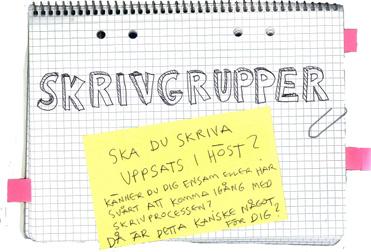 SKRIVGRUPPER
SKA DU SKRIVA
UPPSATS I HÖST?
KÄNNER DU DIG ENSAM ELLER HAR
SVÅRT ATT KOMMA IGÅNG MED
SKRIVPROCESSEN?
DÅ ÄR DETTA KANSKE NÅGOT
FÖR DIG?